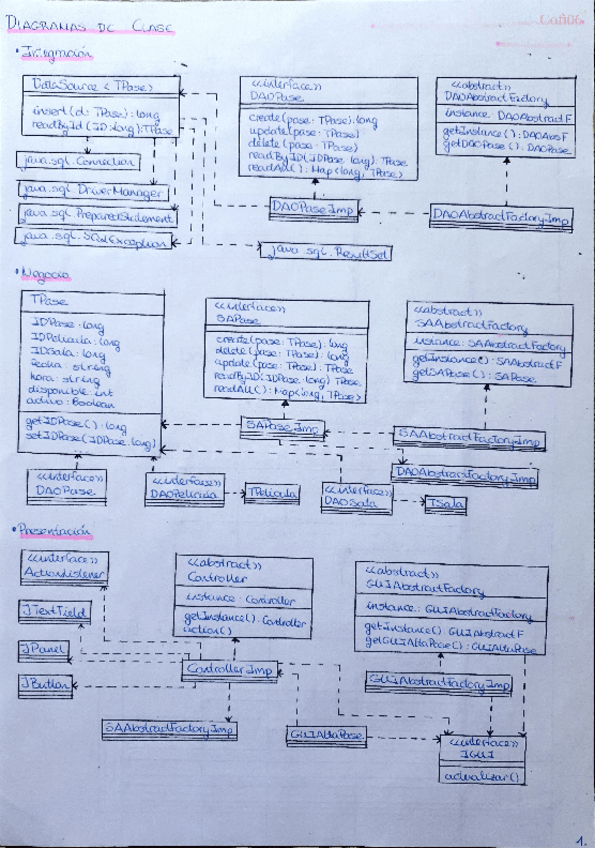 DIAGRAMAS DE CLASE
Cañ06
• Integración
DataSource <TPase>
insert(d: TPase): long
readById (ID: long): TPase
java.sql.Connection
java.sql.DriverManager
java.sql.PreparedStatement
java.sql.SQLException
<<interface>>
DAOPase
create(pase: TPase): long
update(pase: TPase)
delete(pase: TPase)
readByID(IDPase: long): TPase
readAll(): Map<long, TPase>
DAOPaseImp
java.sql.ResultSet
<<abstract>>
DAOAbstractFactory
instance: DAOAbstractF
getInstance(): DAOAbsF
getDAOPase(): DAOPase
DAOAbstractFactoryImp
• Negocio
TPase
IDPase: long
IDPelicula: long
IDSala: long
fecha: string
hora: string
disponible: int
activo: Boolean
getIDPase(): long
setIDPase(IDPase: long)
<<interface>>
SAPase
create(pase: TPase): long
delete(pase: TPase): long
update(pase: TPase): TPase
readByID(IDPase: long): TPase
readAll(): Map<long, TPase>
SAPaseImp
<<abstract>>
SAAbstractFactory
instance: SAAbstractFactory
getInstance(): SAAbstractF
getSAPase(): SAPase
SAAbstractFactoryImp
DAOAbstractFactoryImp
<<interface>>
DAOPase
<<interface>>
DAOPelicula
TPelicula
<<interface>>
DAOSala
TSala
• Presentación
<<interface>>
ActionListener
JTextField
JPanel
JButton
<<abstract>>
Controller
instance: Controller
getInstance(): Controller
action()
ControllerImp
SAAbstractFactoryImp
<<abstract>>
GUIAbstractFactory
instance: GUIAbstractFactory
getInstance(): GUIAbstractF
getGUIAltaPase(): GUIAltaPase
GUIAbstractFactoryImp
GUIAltaPase
<<interface>>
IGUI
actualizar()
1.